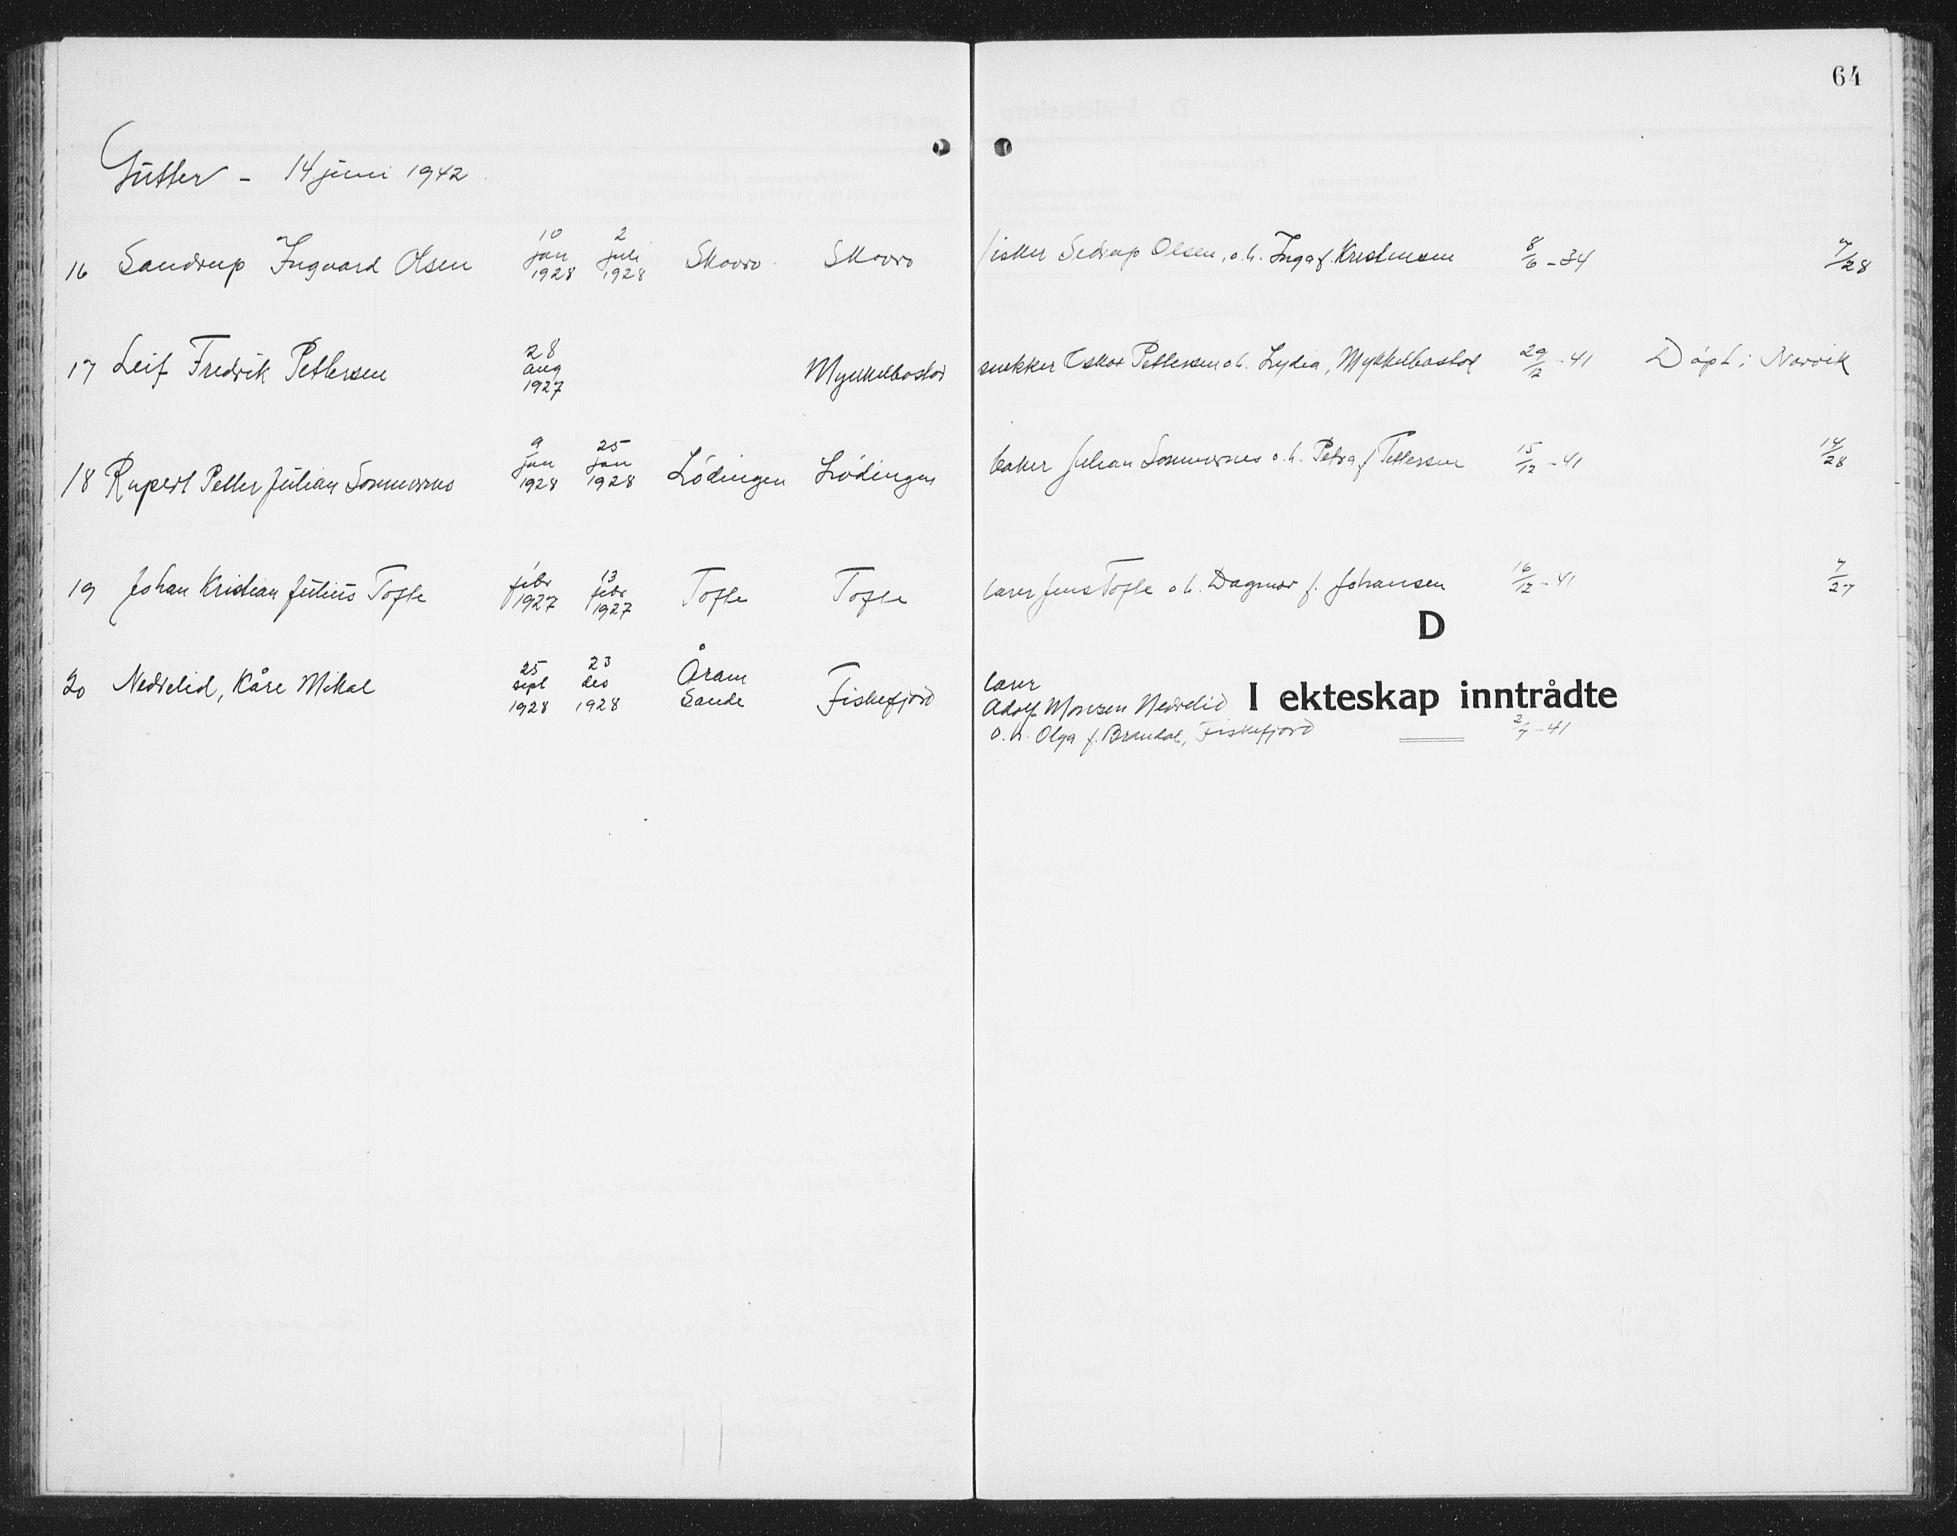 64
Gutter - 14 juni 1942
16 Sandrup Ingvard Olsen 10 jan 1928 2 juli 1928 Skovro Skovro fisker Sedrup Olsen, o.h. Inga f. Kristensen 8/6-34 7/28
17 Leif Fredrik Pettersen 28 aug 1927 Mykkelbostad snekker Oskar Pettersen o.h. Lydia, Mykkelbostad 29/12-41 Döpt i Narvik
18 Rupert Petter Julian Sommernes 9 jan 1928 25 jan 1928 Lödingen Lödingen baker Julian Sommernes o.h. Petra f Pettersen 15/12-41 14/28
19 Johan Kristian Julius Tofte febr 1927 13 febr 1927 Tofte Tofte lærer Jens Tofte o.h. Dagmar f. Johansen 16/12-41 7/27
D
20 Nedrelid, Kåre Mikal 25 sept 1928 23 des 1928 Åram Sande Fiskefjord lærer
Adolf Monsen Nedrelid
I ekteskap inntrådte
o.h. Olga f. Brandal, Fiskefjord 2/7-41